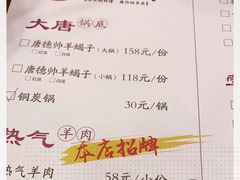 大唐 锅底
唐德帅羊蝎子(大锅) 158元/份
红汤 白汤
唐德帅羊蝎子(小锅) 118元/份
红汤 白汤
铜炭锅 30元/锅
热气 羊肉
本店招牌
热气羊肉 58元/小份